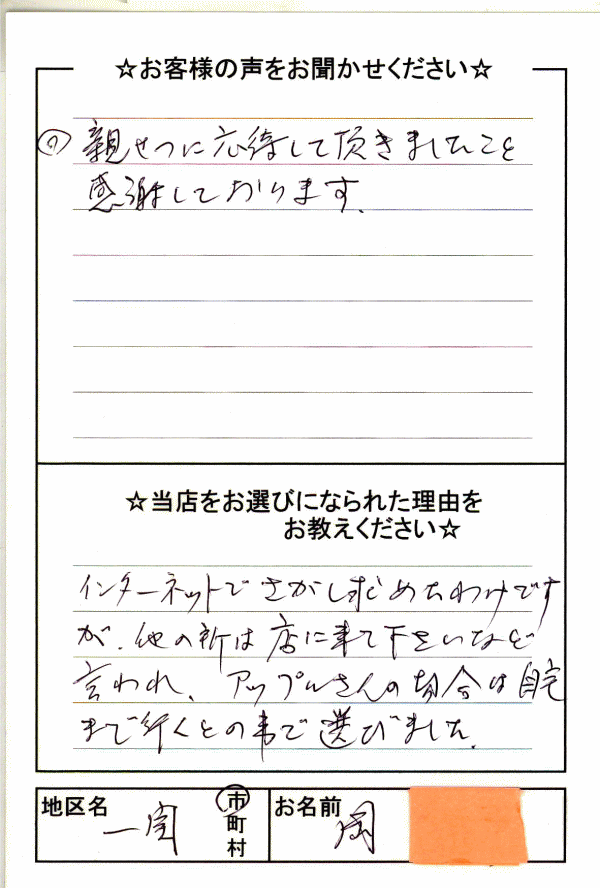 ☆お客様の声をお聞かせください☆
親せつに応待して頂きましたこと
感謝しております。
☆当店をお選びになられた理由を
お教えください☆
インターネットでさがし求めたわけです
が、他の所は店に来て下さいなど
言われ、アップルさんの場合は自宅
まで行くとの事で選びました。
地区名 一関 市
町
村
お名前